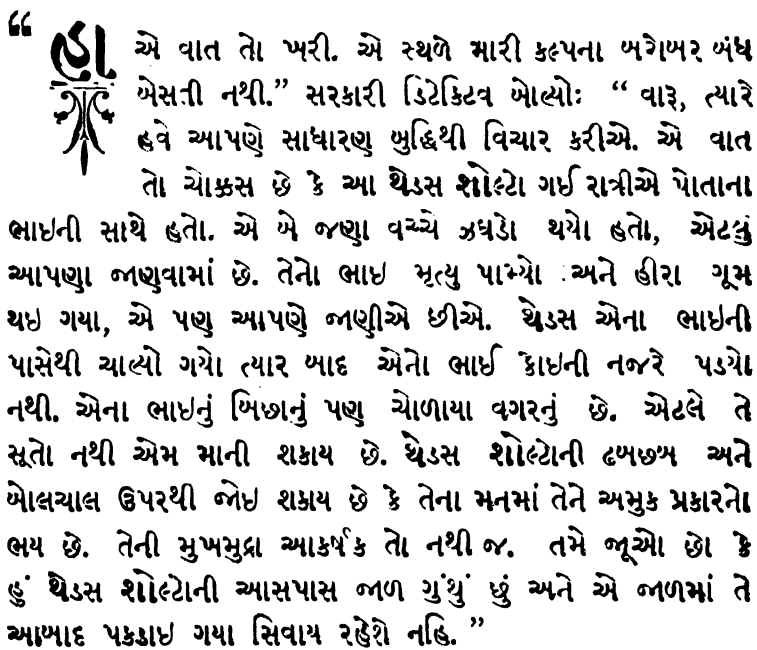 “હા એ વાત તો ખરી. એ સ્થળે મારી કલ્પના બરોબર બંધ
બેસતી નથી.” સરકારી ડિટેક્ટિવ બોલ્યોઃ “ વારૂ, ત્યારે
હવે આપણે સાધારણ બુદ્ધિથી વિચાર કરીએ. એ વાત
તો ચોક્કસ છે કે આ થેડસ શોલ્ટો ગઈ રાત્રીએ પોતાના
ભાઇની સાથે હતો. એ બે જણા વચ્ચે ઝઘડો થયો હતો, એટલું
આપણા જાણવામાં છે. તેનો ભાઇ મૃત્યુ પામ્યો અને હીરા ગૂમ
થઇ ગયા, એ પણ આપણે જાણીએ છીએ. થેડસ એના ભાઇની
પાસેથી ચાલ્યો ગયો ત્યાર બાદ એનો ભાઈ કોઇની નજરે પડયો
નથી. એના ભાઇનું બિછાનું પણ ચોળાયા વગરનું છે. એટલે તે
સૂતો નથી એમ માની શકાય છે. થેડસ શોલ્ટોની ઢબછબ અને
બોલચાલ ઉપરથી જોઇ શકાય છે કે તેના મનમાં તેને અમુક પ્રકારનો
ભય છે. તેની મુખમુદ્રા આકર્ષક તો નથી જ. તમે જૂઓ છો કે
હું થેડસ શોલ્ટોની આસપાસ જાળ ગુંથું છું અને એ જાળમાં તે
આબાદ પકડાઇ ગયા સિવાય રહેશે નહિ. ”